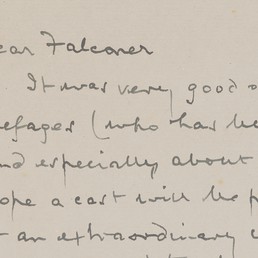 ear Falconer
It was very good o
efages (who has be
nd especially about
ope a cast will be p
t an extraordinary c